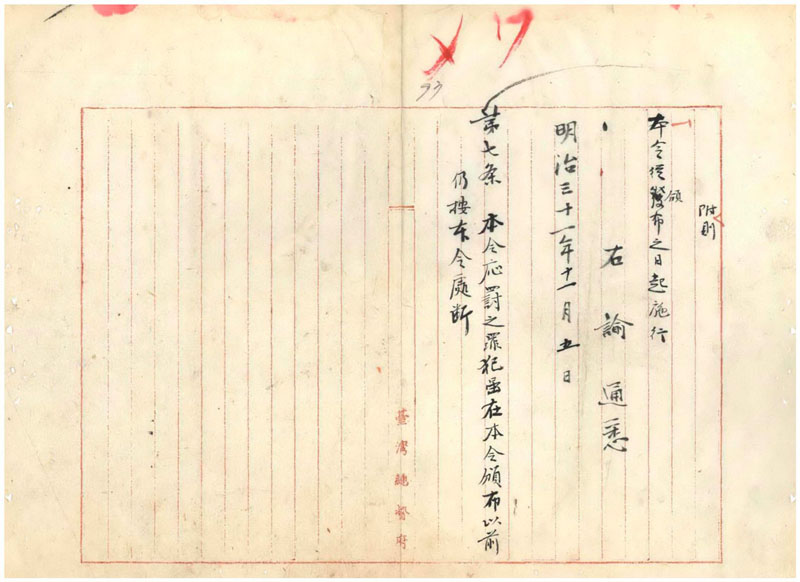 附則
本令從發布之日起施行
頒
右諭通悉
明治三十一年十一月五日
第七条 本令応罰之罪犯虽在本令頒布以前
仍按本令處断
臺灣總督府